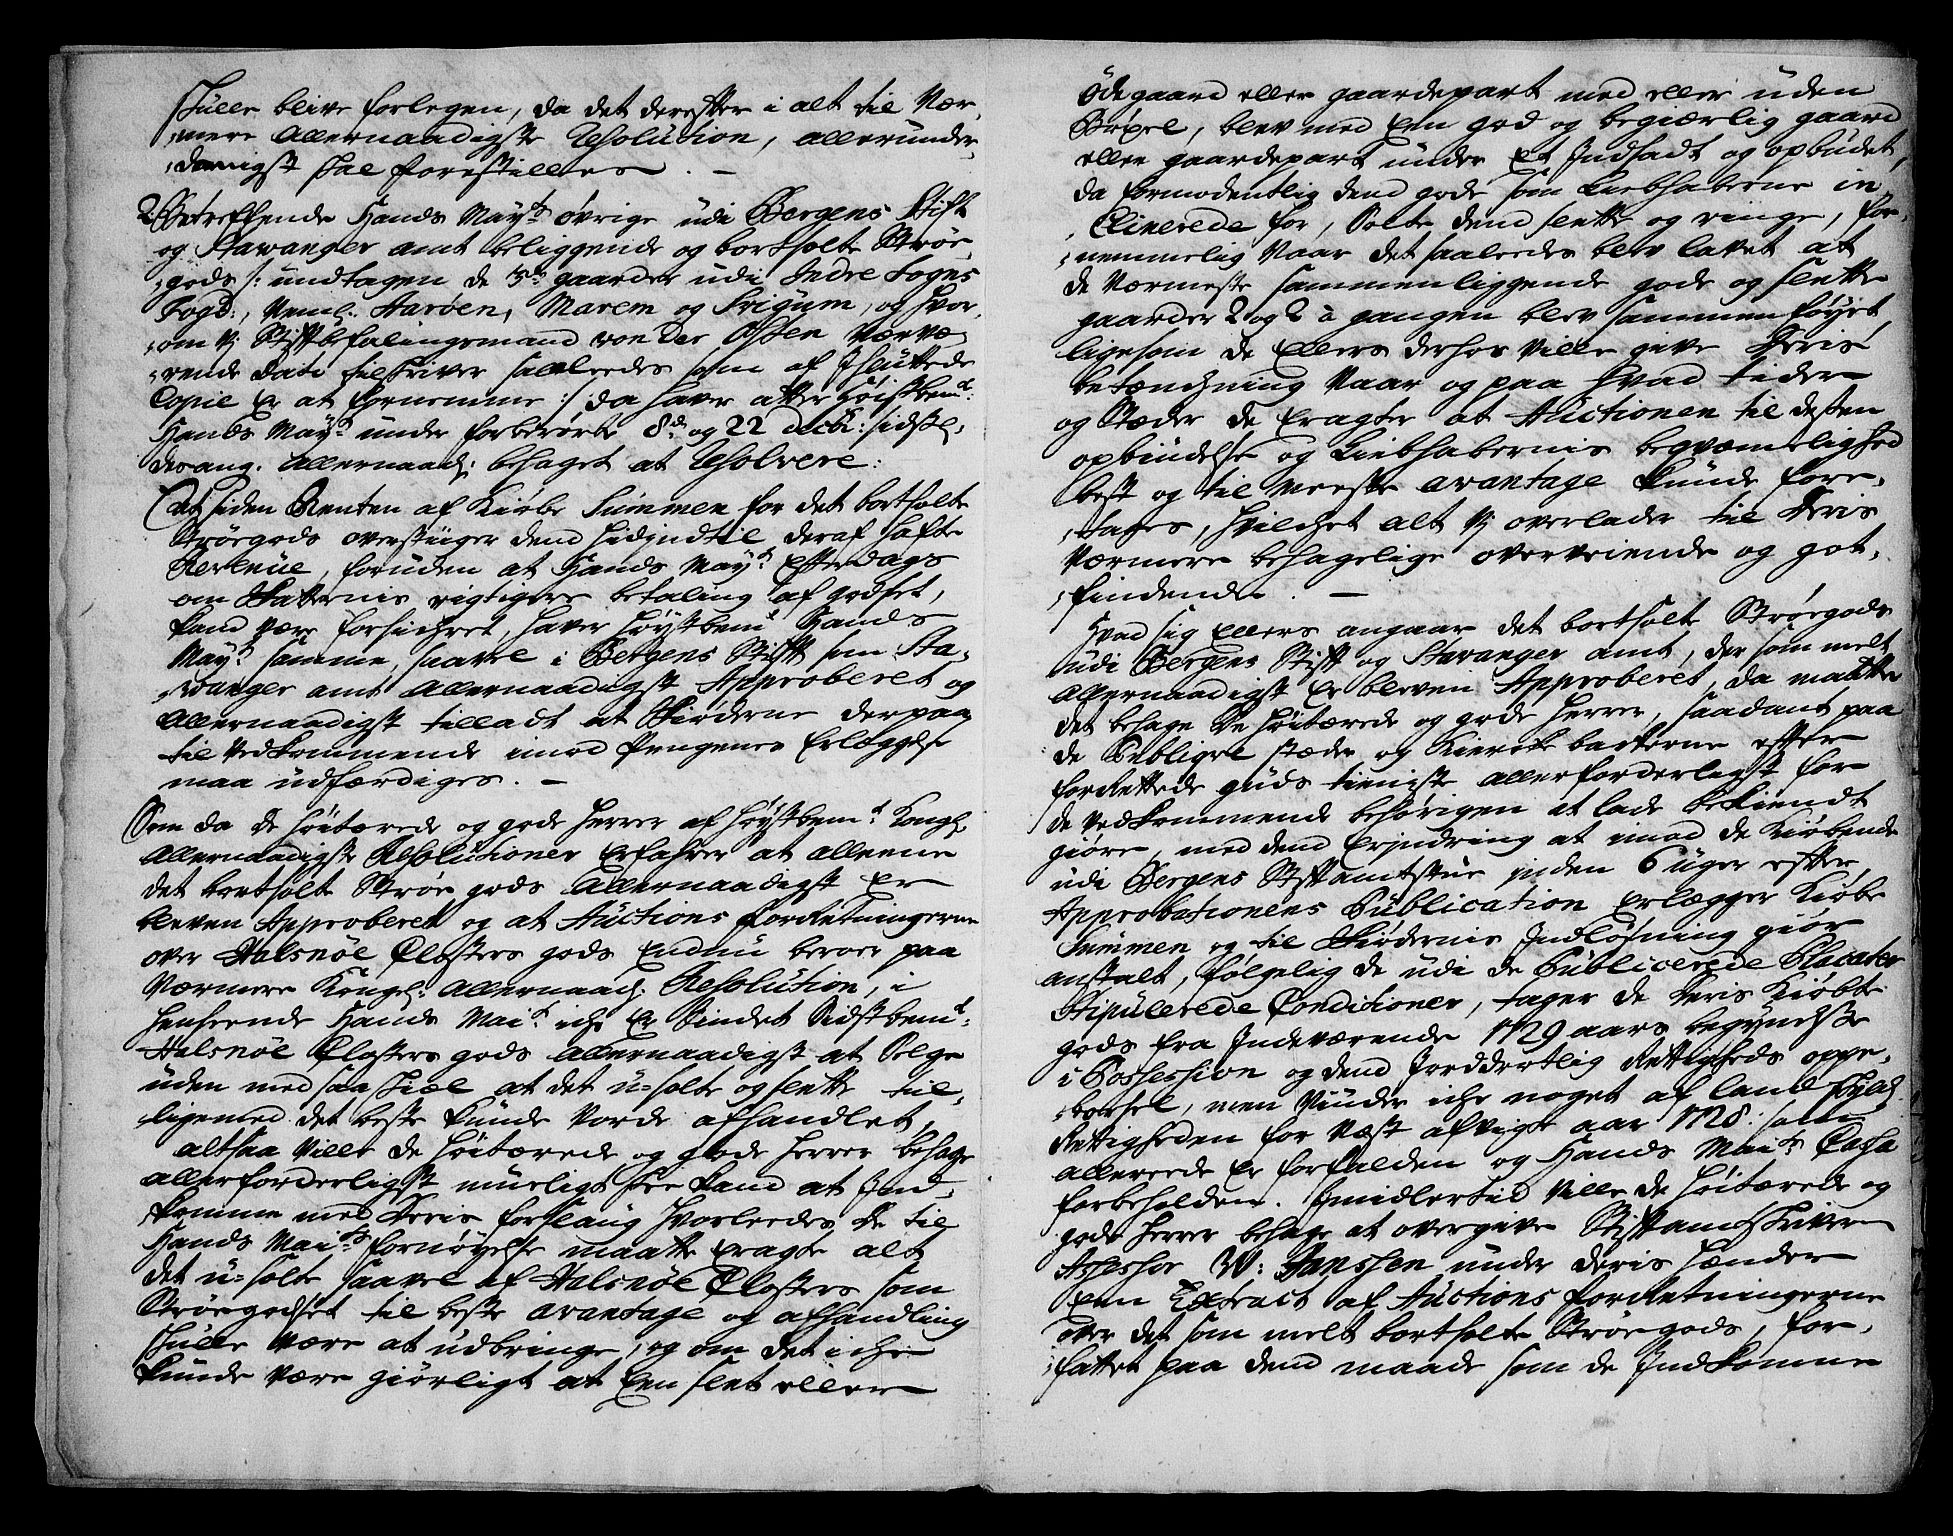 skulle blive forlegen, da det derefter i alt til Vær-
mere Allernaadigste Resolution, allerunder-
danigst skal forestilles. —
2. Betreffende Hands Mayts øvrige udi Bergens Stift
og Stavanger amt beliggende og bortsolte Strøe-
gods /: undtagen de 3de gaarder udi Indre Sogns
Fogd:, Neml. Harøen, Marem og Frigum, og hvor-
om Vj Stiftbefalingsmand von der Osten Værvæ-
rende dato tilskriver saaleedes som af Jsluttede
Copie er at fornemme :/ da haver atter Høistbemt:
Hands Mayt: under forberørte 8de og 22 decbr: sidstl.
dranng. Allernaad: behaget at Resolvere:
At siden Renten af Kiøbe Summen for det bortsolte
Strøegods overstiiger dend hidjndtil deraf hafte
Revenüe, foruden at Hands Mayt Efterdags
om Skatternis rigtigere betaling af godset,
kand være forsichret, haver Høystbemt Hands
Mayt samme, saavel i Bergens Stift som Sta-
vanger amt Allernaadigst Approberet og
Allernaadigst tilladt at Skiøderne derpaa
til vedkommende imod Pengenes Erlæggelse
maa udfærdiges. —
Som da De Høitærede og gode Herrer af Høystbemt Kongl.
Allernaadigste Resolutioner Erfahrer at alleene
det bortsolte Strøe gods Allernaadigst Er
bleven Approberet og at Auctions forretningerne
over Halsnøe Closters gods Endnu beroer paa
Værmere Kongel: Allernaad: Resolution, i
henseende Hands Mait iche Er sindet Sidstbemt:
Halsnøe Closters gods Allernaadigst at Selge
uden med saa skiæl at det u-solte og slette til-
ligemed det beste kunde vorde afhandlet,
altsaa Ville de Høitærede og goode Herrer behage
allerforderligst mueligt skee kand at Ind-
komme med Deris forslaug hvorleedes De til
Hands Maits fornøyelse maatte Eragte alt
det u-solte saavel af Halsnøe Closters som
Strøegodset til beste avantage og afhandling
skulle være at udbringe, og om det iche
kunde være giørligt at Een slet eller
Ødegaard eller gaardepart med eller uden
Bøxel, blev med Een god og begiærlig gaard
eller gaardepart under Et Indsadt og opbudet,
da formodentlig dend gode som Liebhaberne in-
clinerede for, Solte dend slette og ringe, for-
nemmelig Naar det saaleedes blev lavet at
de Nærmeste sammenliggende gode og slette
gaarder 2 og 2 a gangen blev sammenføyet,
ligesom de Ellers derhos ville give Deris
betænchning Naar og paa hvad tider
og Stæder de Eragte at Auctionen til desten
opbiudelse og Liebhabernis beqvæmelighed
best og til meeste avantage kunde fore-
tages, hvilchet alt Vj overlader til Deris
Værmere behagelige overveiende og got-
findende. —
Hvad sig Ellers angaar det bortsolt Strøegods
udi Bergens Stift og Stavanger Amt, der som melt
Allernaadigst Er bleven Approberet, da maatte
det behage De Høitærede og gode Herrer, saadant paa
de Publiqve stæder og Kierckebackerne efter
forrettede guds tieniste allerforderligst for
de vedkommende behørigen at lade bekiendt
giøre, med dend Erjndring at imod de Kiøbende
udi Bergens Stiftamtstue jnden 6 uger efter
Approbationens Publication Erlægger Kiøbe
Summen og til Skiødernis Jndløsning giør
anstalt, følgelig de udi de Publicerede Placater
stipulerede Conditioner, tager de deris Kiøbte
gods fra Indeværende 1729 aars begyndelse
i Possession og dend Jordderlig Rettigheds oppe-
børsel, men Niuder iche noget af land skyld
Rettigheden for Næst afvigte aar 1728. som
allereede Er forfalden og Hands Maits Cassa
forbeholden. Jmidlertid Ville de Høitærede og
gode Herrer behage at overgive Stiftamtskriver
Assessor W: Janssen under deris Hænder
Een Extract af Auctions forretningerne
over det som melt bortsolte Strøegods, for-
fattet paa dend maade som de Indkomne